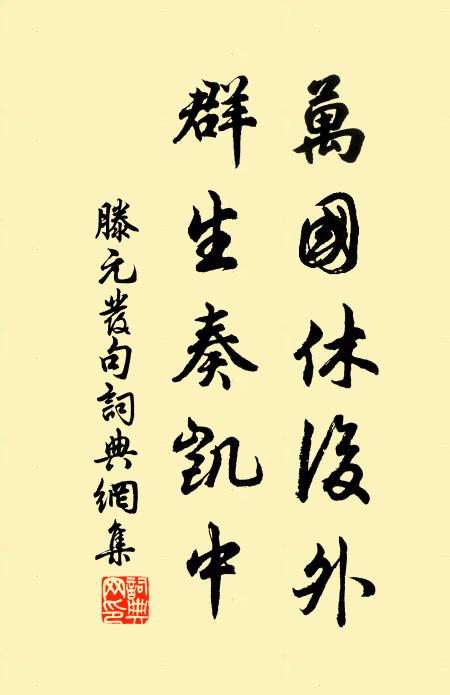 萬國休外
群生奏凱中
滕元發句詞典網集
詞典
网印